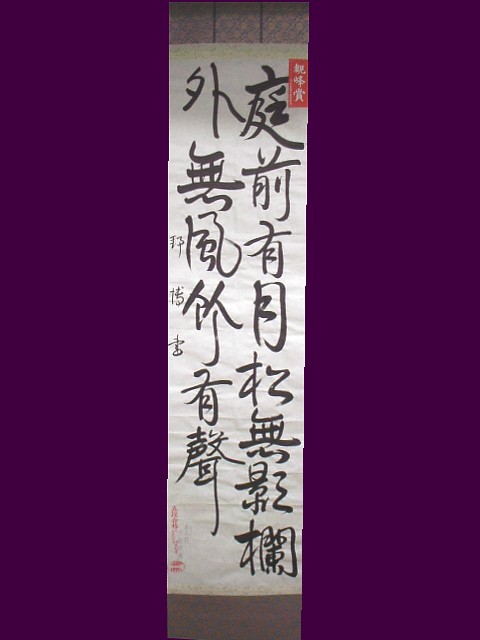 観峰賞
庭前有月松無影欄
外無風竹有聲
博書